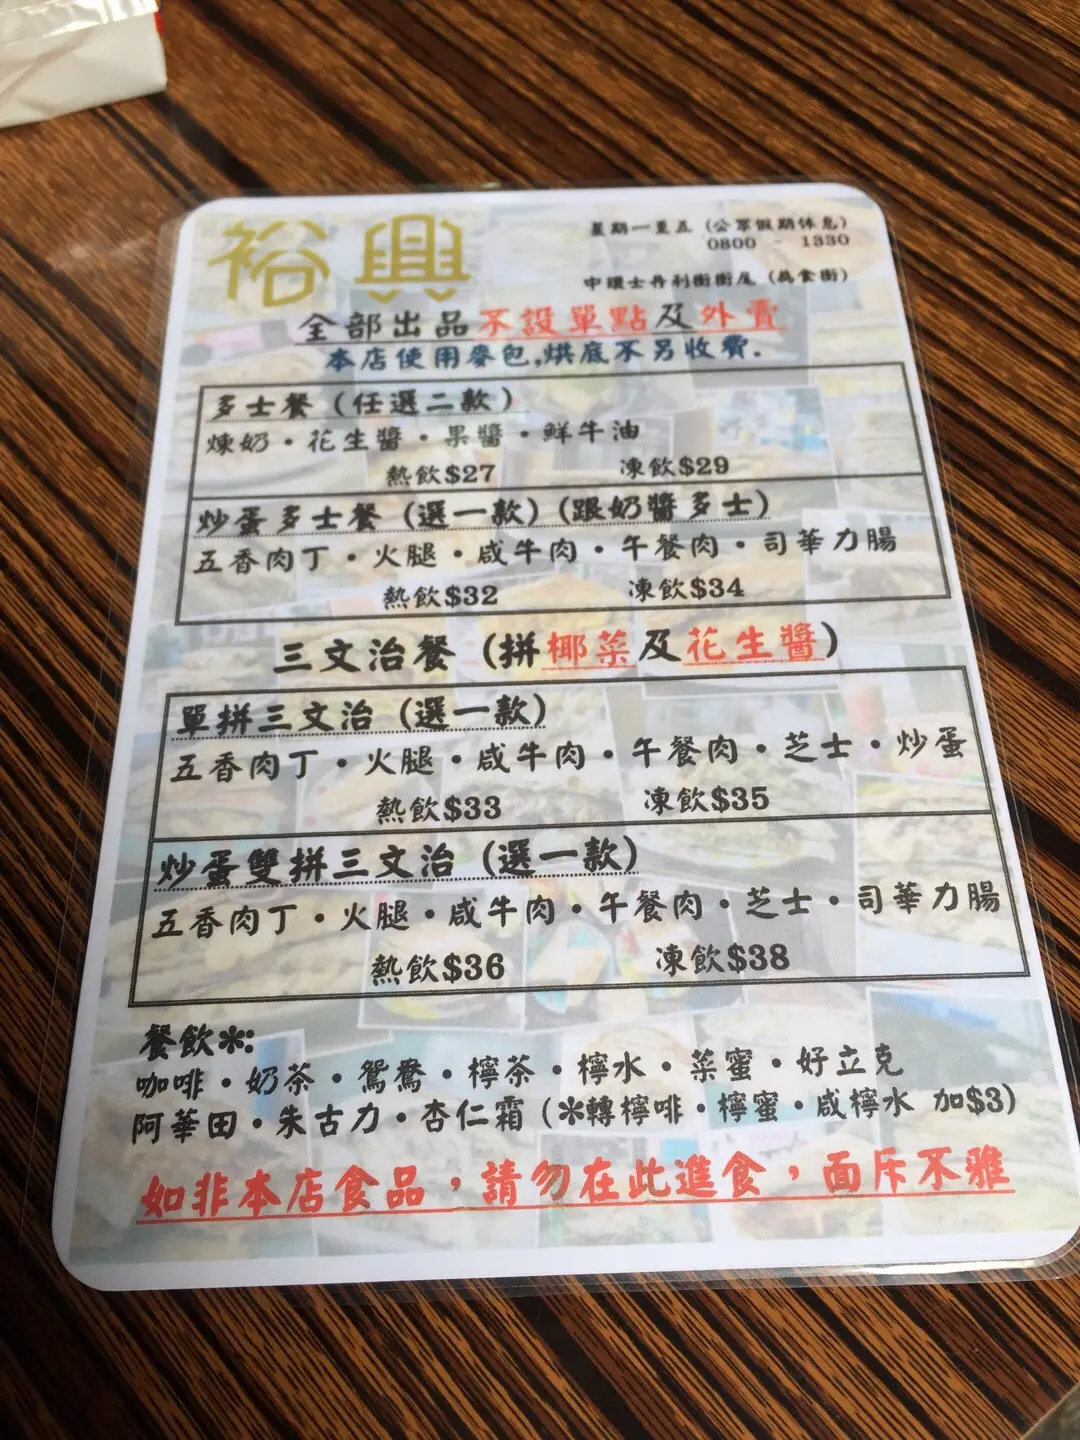 裕興
星期一至五 (公眾假期休息)
0800 - 1330
中環士丹利街街尾 (為食街)
全部出品不設單點及外賣
本店使用麥包,烘底不另收費.
多士餐 (任選二款)
煉奶·花生醬·果醬·鮮牛油
熱飲$27 凍飲$29
炒蛋多士餐 (選一款) (跟奶醬多士)
五香肉丁·火腿·咸牛肉·午餐肉·司華力腸
熱飲$32 凍飲$34
三文治餐 (拼椰菜及花生醬)
單拼三文治 (選一款)
五香肉丁·火腿·咸牛肉·午餐肉·芝士·炒蛋
熱飲$33 凍飲$35
炒蛋雙拼三文治 (選一款)
五香肉丁·火腿·咸牛肉·午餐肉·芝士·司華力腸
熱飲$36 凍飲$38
餐飲*:
咖啡·奶茶·鴛鴦·檸茶·檸水·菜蜜·好立克
阿華田·朱古力·杏仁霜 (*轉檸啡·檸蜜·咸檸水 加$3)
如非本店食品，請勿在此進食，面斥不雅